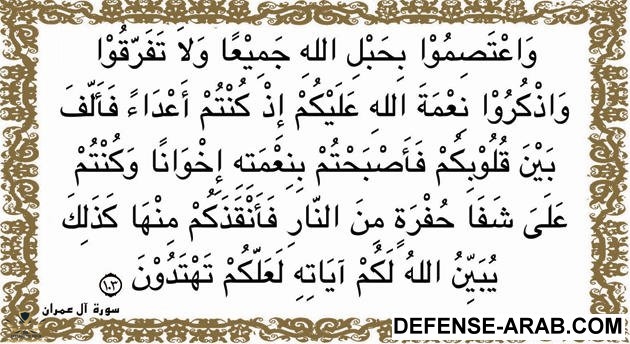 وَاعْتَصِمُوْا بِحَبْلِ اللهِ جَمِيْعًا وَلاَ تَفَرَّقُوْا
وَاذْكُرُوْا نِعْمَةَ اللهِ عَلَيْكُمْ إِذْ كُنْتُمْ أَعْدَاءً فَأَلَّفَ
بَيْنَ قُلُوْبِكُمْ فَأَصْبَحْتُمْ بِنِعْمَتِهِ إِخْوَانًا وَكُنْتُمْ
عَلَىَ شَفَا حُفْرَةٍ مِنَ النَّارِ فَأَنْقَذَكُمْ مِنْهَا كَذَلِكَ
يُبَيِّنُ اللهُ لَكُمْ آيَاتِهِ لَعَلَّكُمْ تَهْتَدُوْنَ ١٠٣
سورة آل عمران
DEFENSE-ARAB.COM